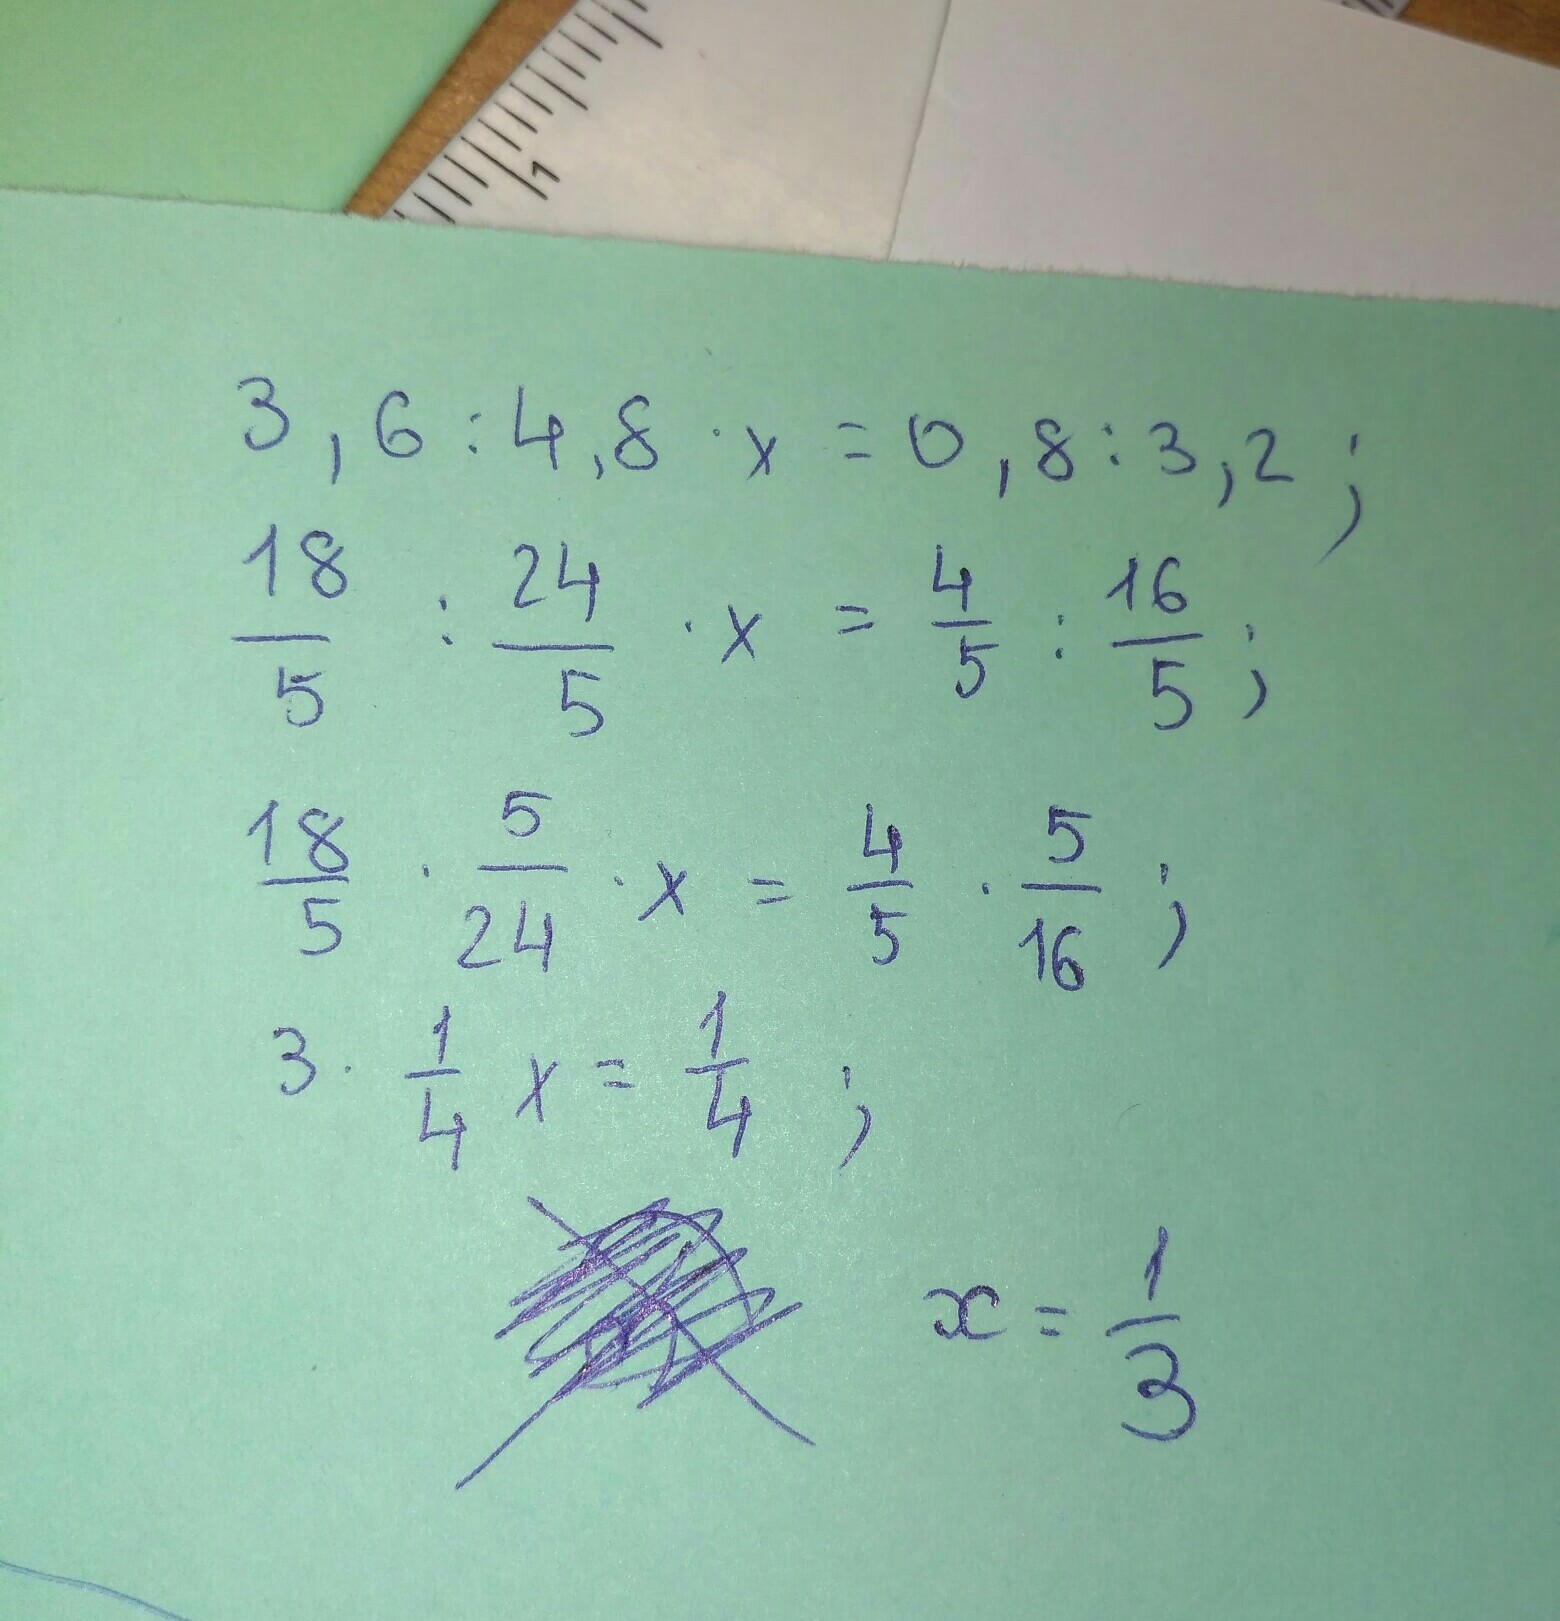 1
3,6 : 4,8 · x = 0,8 : 3,2 ;
18/5 : 24/5 · x = 4/5 : 16/5 ;
18/5 · 5/24 · x = 4/5 · 5/16 ;
3 · 1/4 x = 1/4 ;
x = 1/3